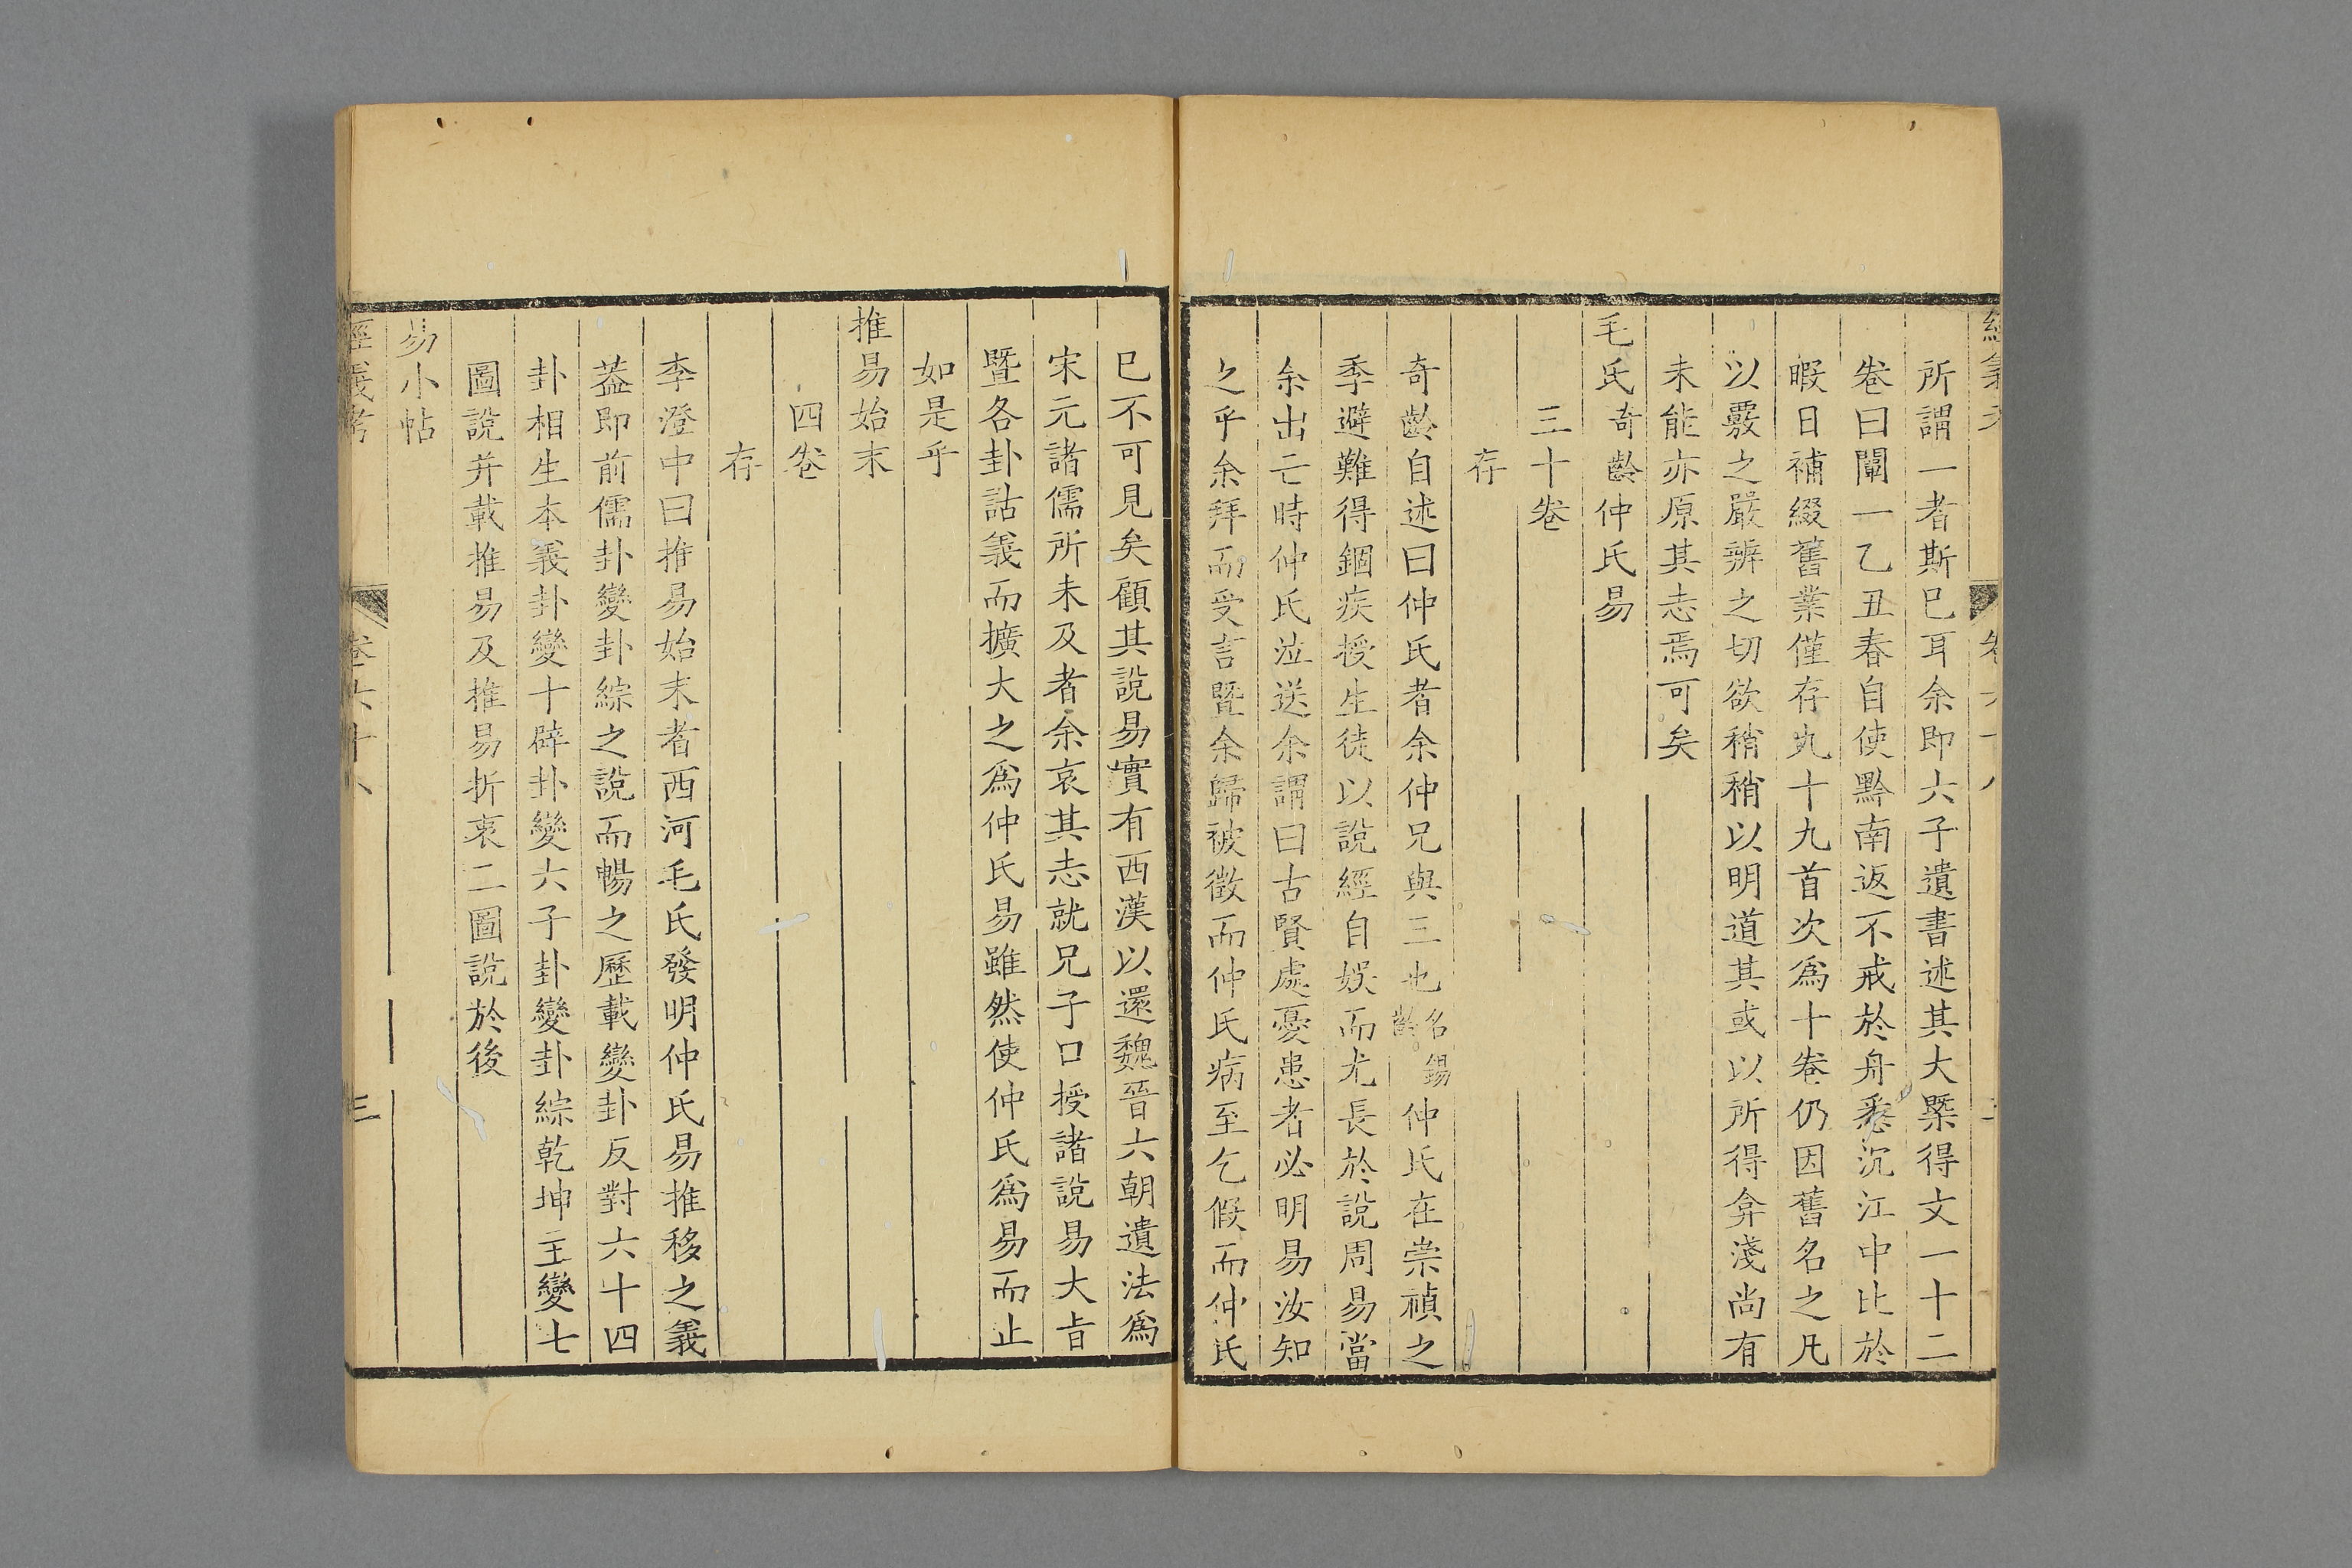 所謂一者斯巳耳余即六子遺書述其大槩得文一十二
卷曰闡一乙丑春自使黔南返不戒於舟悉沉江中比於
暇日補綴舊業僅存丸十九首次為十卷仍因舊名之凡
以覈之嚴辨之切欲稍稍以明道其或以所得弇淺尚有
未能亦原其志焉可矣
毛氏奇齡仲氏易
三十卷
存
奇齡自述曰仲氏者余仲兄與三也名錫齡仲氏在崇禎之
季避難得錮疾授生徒以說經自娱而尤長於說周易當
余出亡時仲氏泣送余謂曰古賢處憂患者必明易汝知
之乎余拜而受言暨余歸被徵而仲氏病至乞假而仲氏
巳不可見矣顧其說易實有西漢以還魏晉六朝遺法為
宋元諸儒所未及者余哀其志就兄子口授諸說易大旨
暨各卦詁義而擴大之為仲氏易雖然使仲氏為易而止
如是乎
推易始末
四卷
存
李澄中曰推易始末者西河毛氏發明仲氏易推移之義
葢即前儒卦變卦綜之說而暢之歷載變卦反對六十四
卦相生本義卦變十辟卦變六子卦變卦綜乾坤主變七
圖說并載推易及推易折衷二圖說於後
易小帖
經義考 卷六十八 三